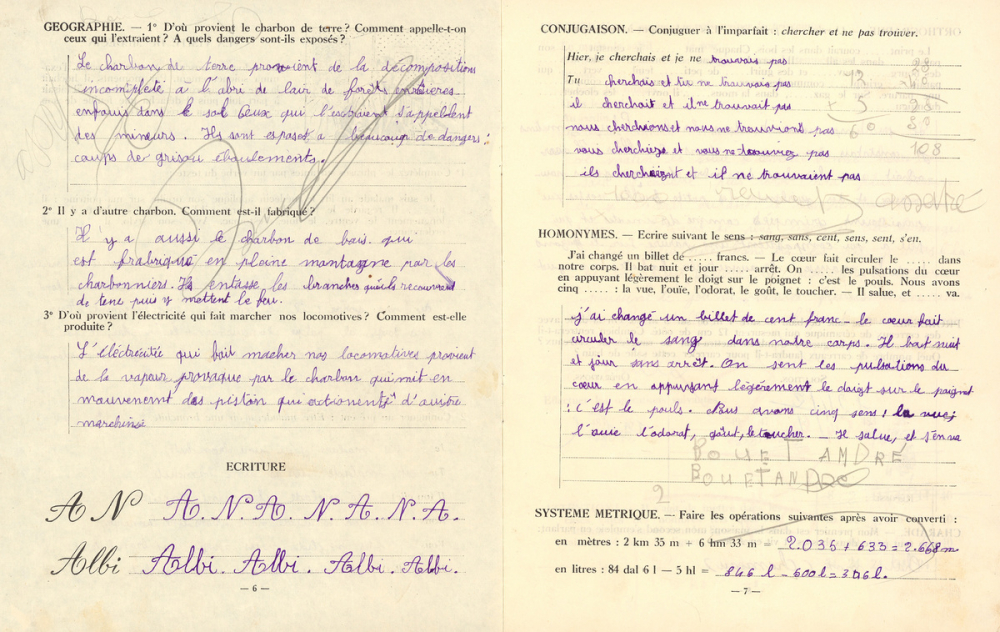 GEOGRAPHIE. — 1° D'où provient le charbon de terre ? Comment appelle-t-on
ceux qui l'extraient ? A quels dangers sont-ils exposés ?
Le charbon de terre provient de la décompositions
incomplété à l'abri de l'air de forêts entières
enfouis dans le sol Ceux qui l'extraient s'appellent
des mineurs. Ils sont exposés a beaucoup de dangers :
coups de grisou éboulements.
2° Il y a d'autre charbon. Comment est-il fabriqué ?
Il y a aussi le charbon de bois qui
est frabriqué en pleine montagne par les
charbonniers. Ils entasse les branches qu'ils recouvrent
de terre puis y mettent le feu.
3° D'où provient l'électricité qui fait marcher nos locomotives ? Comment est-elle
produite ?
L'éléctricité qui fait macher nos locomatives provient
de la vapeur provoque par le charbon qui mit en
mouvement des piston qui actionent d'autre
machines
ECRITURE
A N A. N. A. N. A. N. A.
Albi Albi. Albi. Albi. Albi.
— 6 —
CONJUGAISON. — Conjuguer à l'imparfait : chercher et ne pas trouver.
Hier, je cherchais et je ne trouvais pas
Tu cherchais et tu ne trouvais pas
il cherchait et il ne trouvait pas
nous cherchions et nous ne trouvions pas
vous cherchiez et vous ne trouviez pas
ils cherchaient et il ne trouvaient pas
108
HOMONYMES. — Ecrire suivant le sens : sang, sans, cent, sens, sent, s'en.
J'ai changé un billet de ..... francs. — Le cœur fait circuler le ..... dans
notre corps. Il bat nuit et jour ..... arrêt. On ..... les pulsations du cœur
en appuyant légèrement le doigt sur le poignet : c'est le pouls. Nous avons
cinq ..... : la vue, l'ouïe, l'odorat, le goût, le toucher. — Il salue, et ..... va.
j'ai changé un billet de cent franc — le cœur fait
circuler le sang dans notre corps. Il bat nuit
et jour sans arrêt. On sent les pulsations du
cœur en appuyant légérement le doigt sur le poignet
: c'est le pouls. Nus avons cinq sens : la vue,
l'ouie l'odorat, goût, le toucher. — Il salue, et s'en va
BOUET ANDRÉ
BOUET ANDRE
2
SYSTEME METRIQUE. — Faire les opérations suivantes après avoir converti :
en mètres : 2 km 35 m + 6 hm 33 m = 2.035 + 633 = 2.668 m
en litres : 84 dal 6 l — 5 hl = 846 l - 500 l = 346 l.
— 7 —